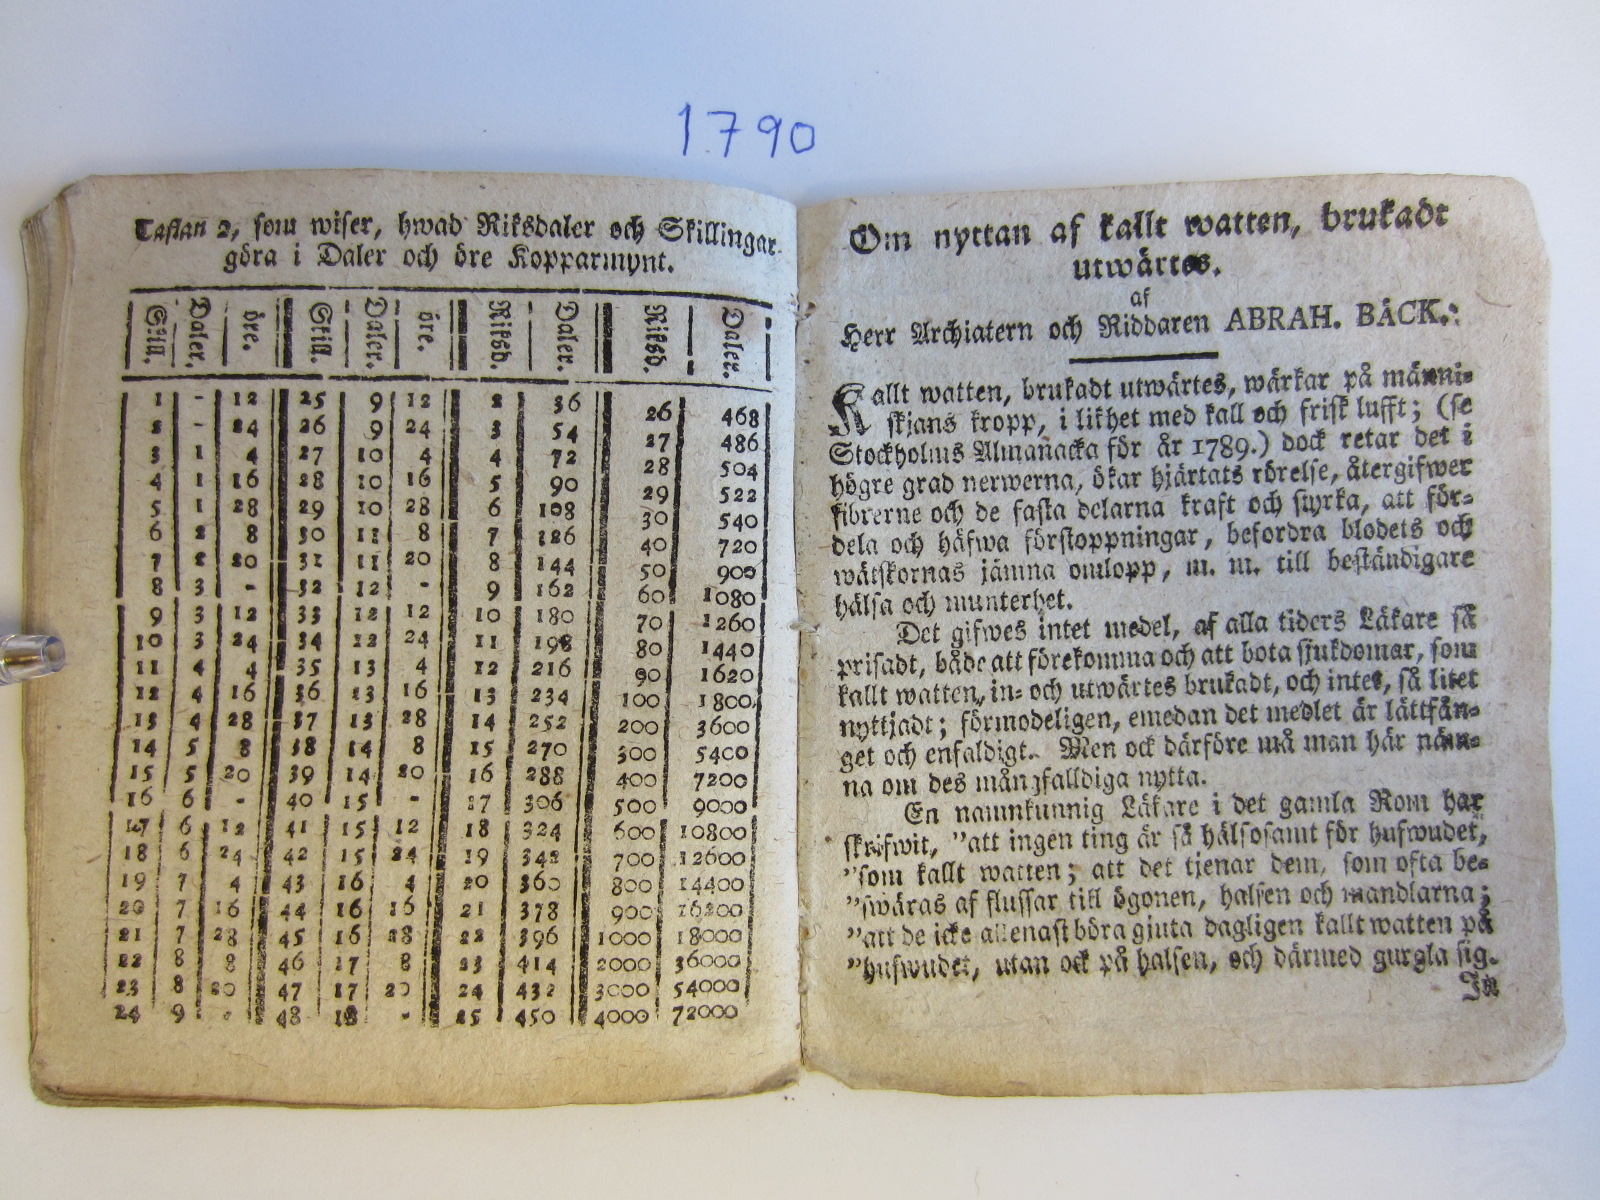 1790
Taflan 2, som wiser, hwad Riksdaler och Skillingar
göra i Daler och öre Kopparmynt.
Skill. Daler. öre. Skill. Daler. öre. Riksd. Daler. Riksd. Daler.
1 - 12 25 9 12 2 36 26 468
2 - 24 26 9 24 3 54 27 486
3 1 4 27 10 4 4 72 28 504
4 1 16 28 10 16 5 90 29 522
5 1 28 29 10 28 6 108 30 540
6 2 8 30 11 8 7 126 40 720
7 2 20 31 11 20 8 144 50 900
8 3 - 32 12 - 9 162 60 1080
9 3 12 33 12 12 10 180 70 1260
10 3 24 34 12 24 11 198 80 1440
11 4 4 35 13 4 12 216 90 1620
12 4 16 36 13 16 13 234 100 1800
13 4 28 37 13 28 14 252 200 3600
14 5 8 38 14 8 15 270 300 5400
15 5 20 39 14 20 16 288 400 7200
16 6 - 40 15 - 17 306 500 9000
17 6 12 41 15 12 18 324 600 10800
18 6 24 42 15 24 19 342 700 12600
19 7 4 43 16 4 20 360 800 14400
20 7 16 44 16 16 21 378 900 16200
21 7 28 45 16 28 22 396 1000 18000
22 8 8 46 17 8 23 414 2000 36000
23 8 20 47 17 20 24 432 3000 54000
24 9 - 48 18 - 25 450 4000 72000
Om nyttan af kallt watten, brukadt
utwärtes.
af
Herr Archiatern och Riddaren ABRAH. BÄCK.
Kallt watten, brukadt utwärtes, wärkar på männi-
skjans kropp, i likhet med kall och frisk lufft; (se
Stockholms Almanacka för år 1789.) dock retar det i
högre grad nerwerna, ökar hjärtats rörelse, återgifwer
fibrerne och de fasta delarna kraft och styrka, att för-
dela och häfwa förstoppningar, befordra blodets och
wätskornas jämna omlopp, m. m. till beständigare
hälsa och munterhet.
Det gifwes intet medel, af alla tiders Läkare så
prisadt, både att förekomma och att bota sjukdomar, som
kallt watten, in- och utwärtes brukadt, och intet, så litet
nyttjadt; förmodeligen, emedan det medlet är lättfån-
get och enfaldigt. Men ock därföre må man här näm-
na om des mångfalldiga nytta.
En namnkunnig Läkare i det gamla Rom har
skrifwit, "att ingen ting är så hälsosamt för hufwudet,
"som kallt watten; att det tjenar dem, som ofta be-
"swäras af flussar till ögonen, halsen och mandlarna;
"att de icke allenast böra gjuta dagligen kallt watten på
"hufwudet, utan ock på halsen, och därmed gurgla sig.
In